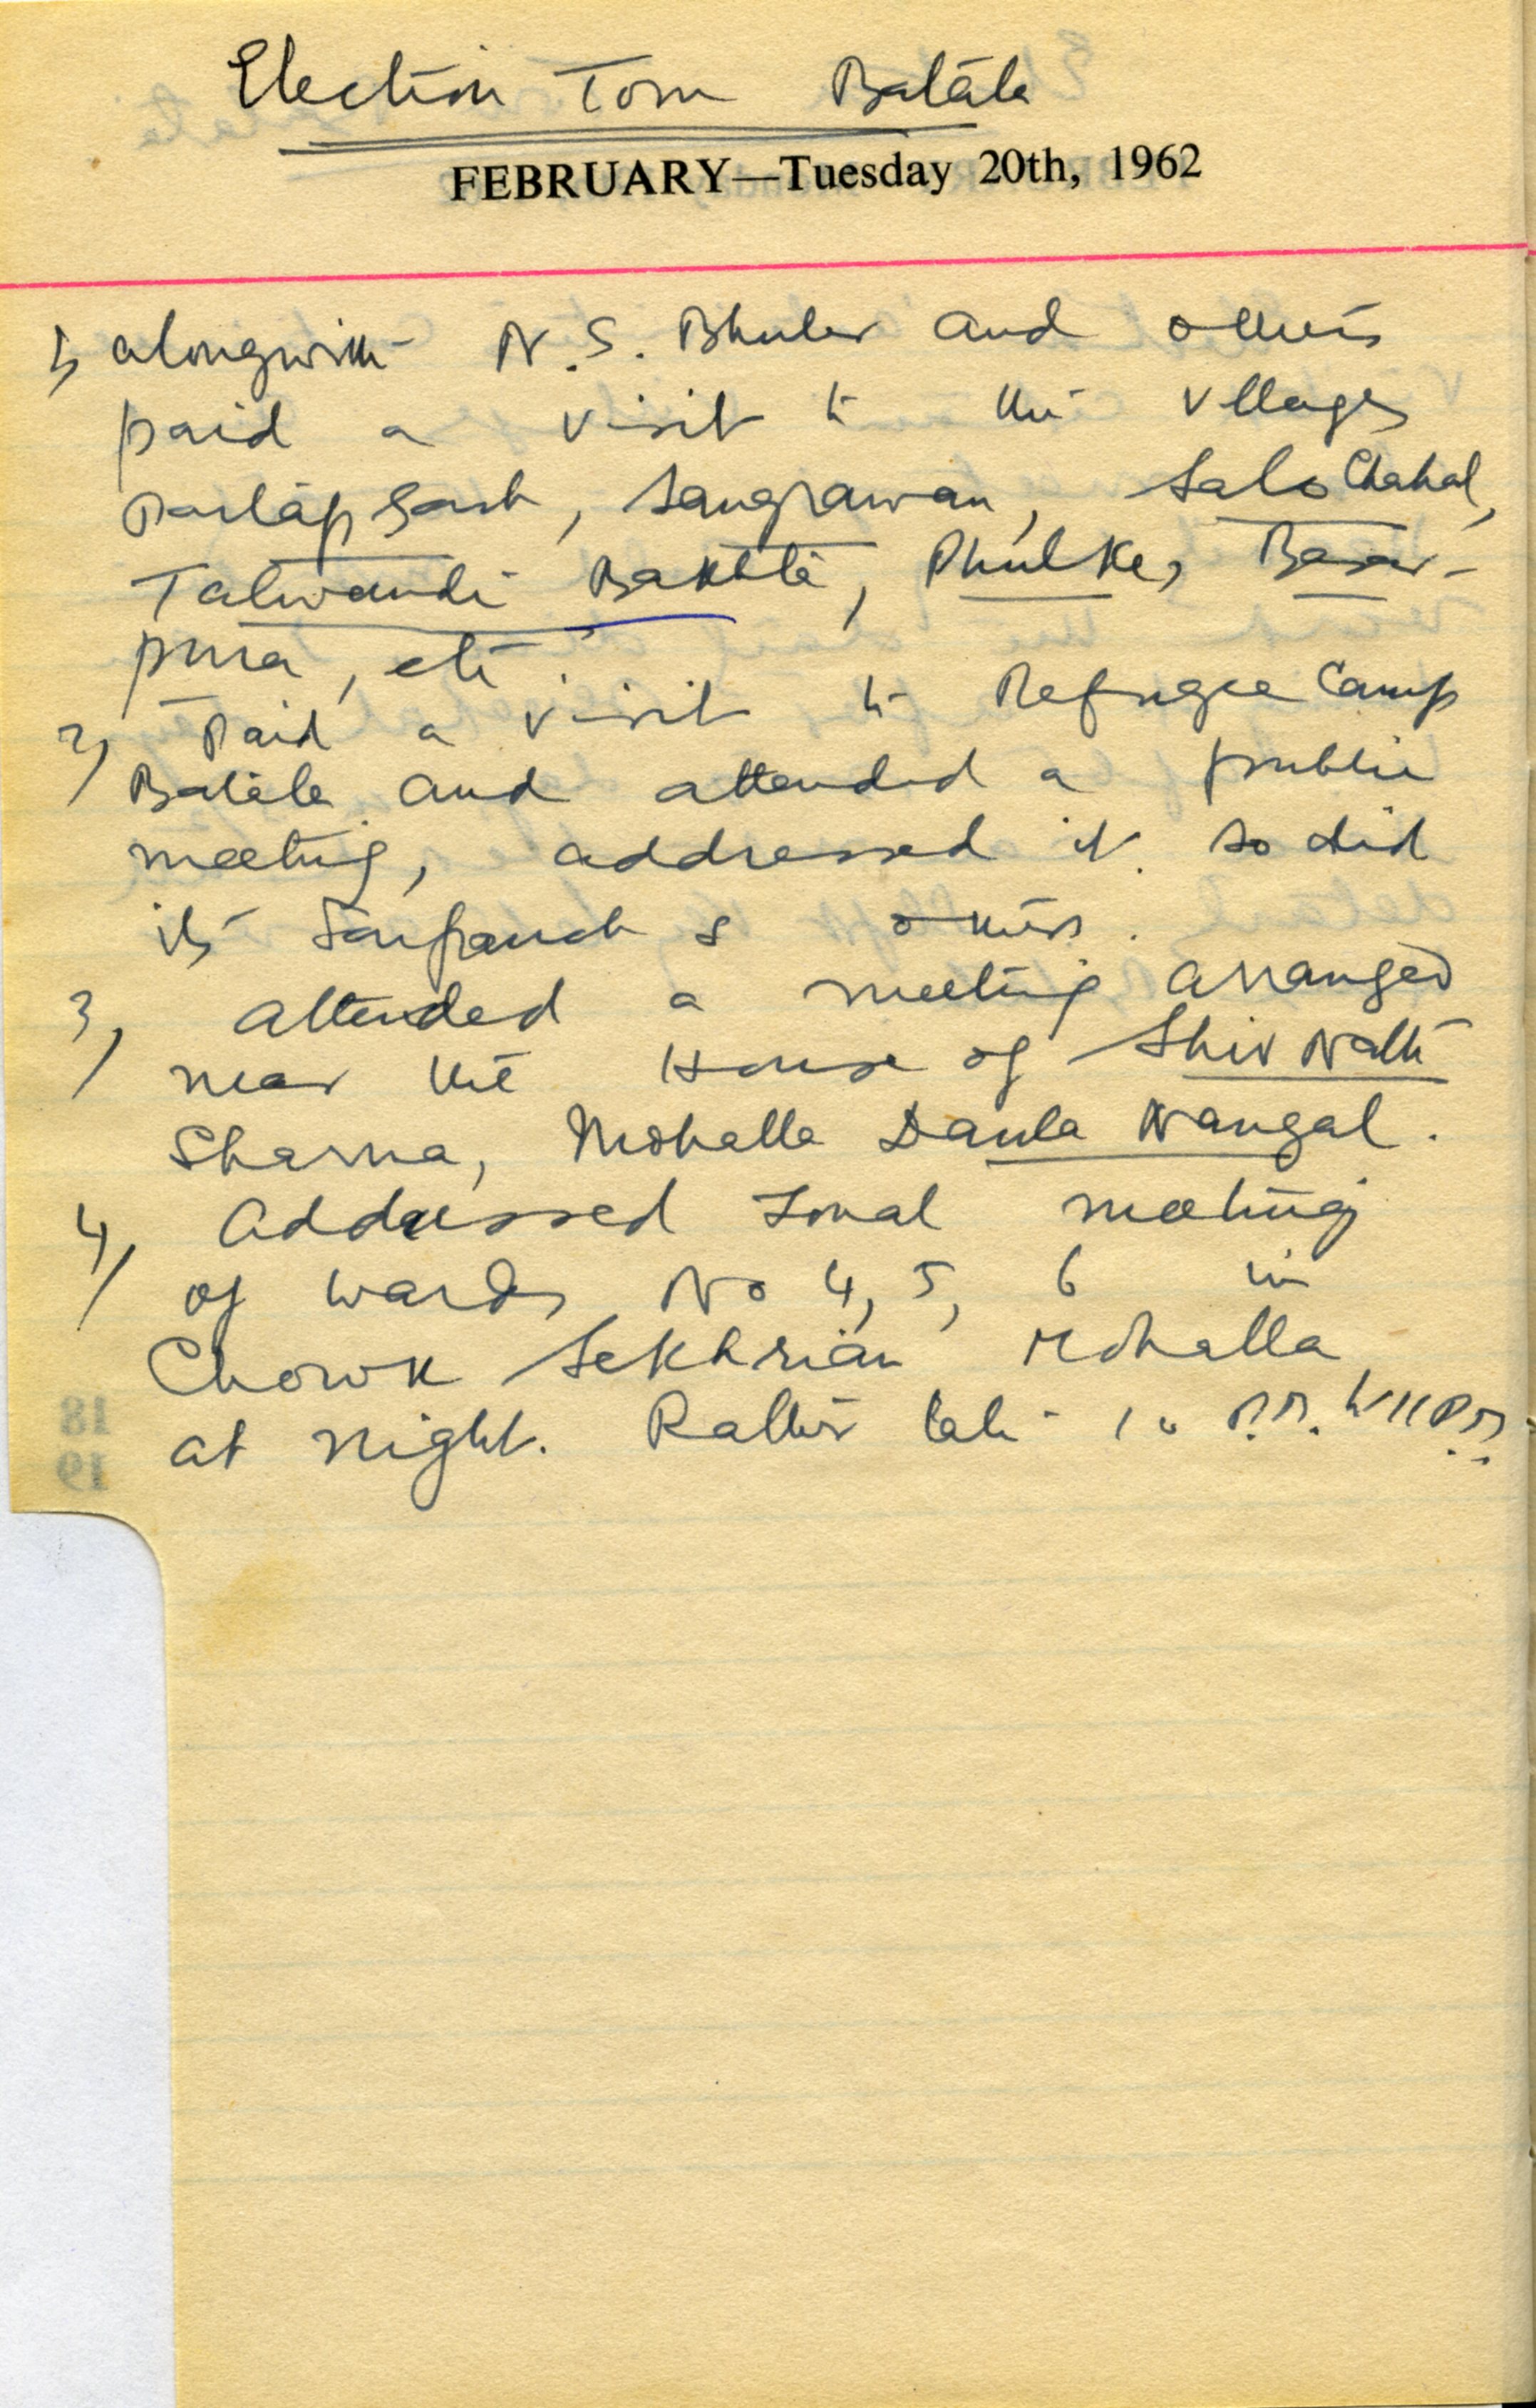 Election Tour Batala
FEBRUARY—Tuesday 20th, 1962
1) alongwith N.S. Bhuler and others
paid a visit to the villages
Partap Garh, Sangrawan, Salo Chahal,
Talwandi Bakhta, Phulke, Basar-
pura, etc.
2) Paid a visit to Refugee Camp
Batala and attended a public
meeting, addressed it. So did
its Sarpanch & others.
3) Attended a meeting arranged
near the House of Shiv Nath
Sharma, Mohalla Daula Nangal.
4) Addressed Zonal meeting
of wards No 4, 5, 6 in
Chowk Sekhrian Mohalla
at night. Rather late 10 P.M. to 11 P.M.
18
19